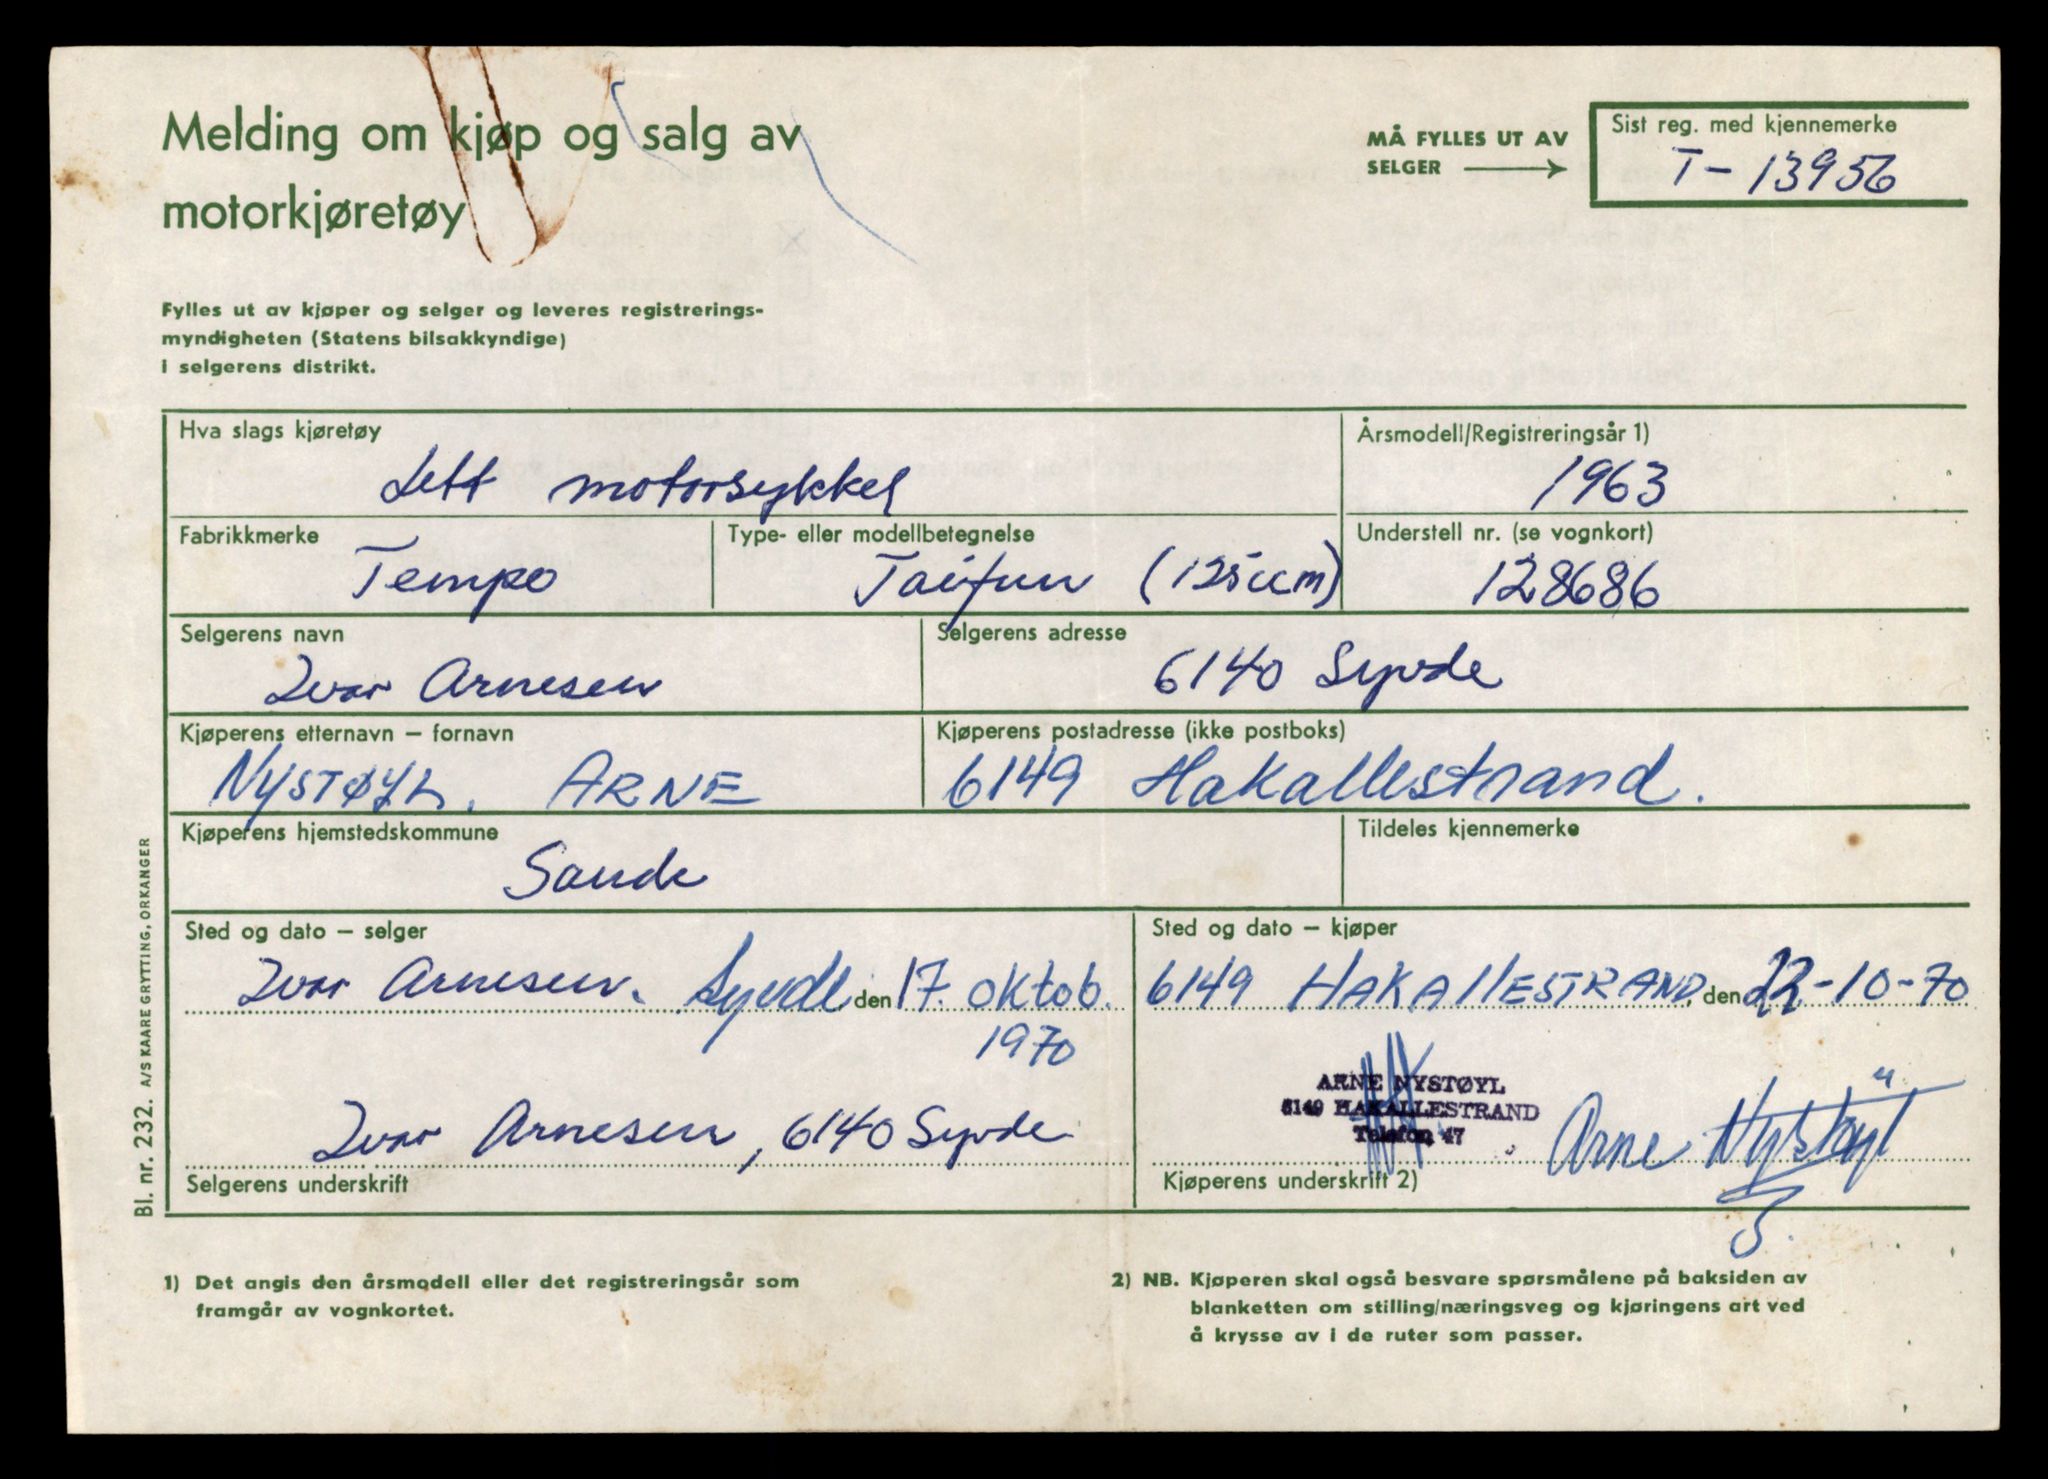 Melding om kjøp og salg av
motorkjøretøy
MÅ FYLLES UT AV
SELGER
Sist reg. med kjennemerke
T-13956
Fylles ut av kjøper og selger og leveres registrerings-
myndigheten (Statens bilsakkyndige)
i selgerens distrikt.
Hva slags kjøretøy
Lett motorsykkel
Årsmodell/Registreringsår 1)
1963
Fabrikkmerke
Tempo
Type- eller modellbetegnelse
Taifun (125ccm)
Understell nr. (se vognkort)
128686
Selgerens navn
Ivar Arnesen
Selgerens adresse
6140 Syvde
Kjøperens etternavn – fornavn
NYSTØYL. ARNE
Kjøperens postadresse (ikke postboks)
6149 Hakallestrand.
Kjøperens hjemstedskommune
Sande
Tildeles kjennemerke
Sted og dato – selger
Ivar Arnesen. Syvde den 17. oktob.
1970
Sted og dato – kjøper
6149 HAKAllESTRAND, den 22.-10-70
Ivar Arnesen, 6140 Syvde
Selgerens underskrift
ARNE NYSTØYL
6149 HAKALLESTRAND
Telefon 47
Arne Nystøyl
Kjøperens underskrift 2)
Bl. nr. 232. A/S KAARE GRYTTING, ORKANGER
1) Det angis den årsmodell eller det registreringsår som
framgår av vognkortet.
2) NB. Kjøperen skal også besvare spørsmålene på baksiden av
blanketten om stilling/næringsveg og kjøringens art ved
å krysse av i de ruter som passer.